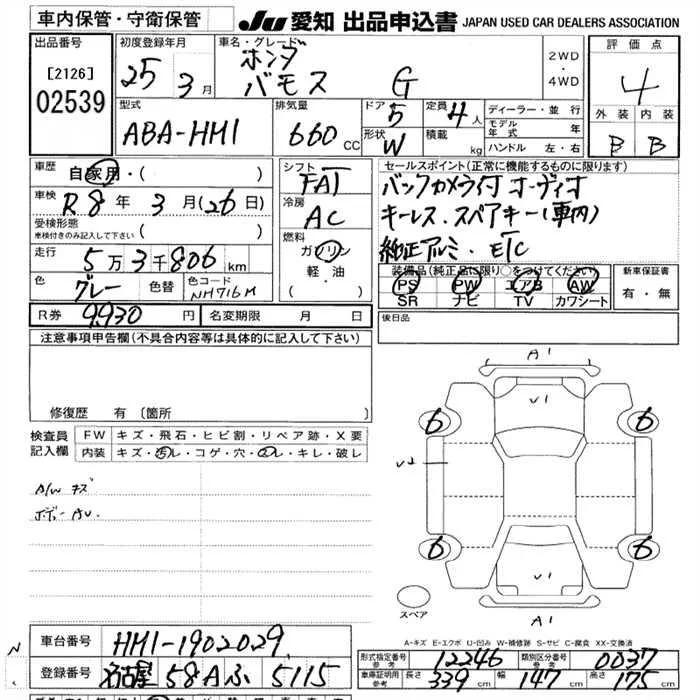 車内保管・守衛保管
JU 愛知 出品申込書 JAPAN USED CAR DEALERS ASSOCIATION
出品番号
[2126]
02539
初度登録年月
25 3月
車名・グレード
ホンダ
バモス G
2WD
・
4WD
評価点
4
外装 内装
B B
型式
ABA-HM1
排気量
660 CC
ドア 5
形状 W
定員 4人
積載 kg
ディーラー・並行
モデル年式 年
ハンドル 左・右
車歴
自家用・( )
車検
R8年 3月(26日)
受検形態
車検付きのみ記入して下さい ( )
走行
5万3千806km
色
グレー
色替
色コード
NH716M
シフト
FAT
冷房
AC
燃料
ガソリン
軽・油
・( )
セールスポイント(正常に機能するものに限ります)
バックカメラ付 オーディオ
キーレス.スペアキー(車内)
純正アルミ.ETC
装備品(純正品に限り○をつけてください)
PS PW エアB AW
SR ナビ TV カワシート
新車保証書
有・無
R券 9,930円
名変期限 月 日
後日品
注意事項申告欄(不具合内容等は具体的に記入して下さい)
修復歴 有(箇所
検査員記入欄
FW キズ・飛石・ヒビ割・リペア跡・X要
内装 キズ・汚レ・コゲ・穴・スレ・キレ・破レ
A/W キズ
ボデーAU.
A1
V1
6 6
V2
6 6
V1
A1
スペア
A-キズ E-エクボ U-凹み W-補修跡 S-サビ C-腐食 XX-交換済
車台番号
HM1-1902029
登録番号
名古屋 58A ふ 5115
形式指定番号
参考
12246
類別区分番号
参考
0037
車庫証明用
参考
長さ 339cm
幅 147cm
高さ 175cm